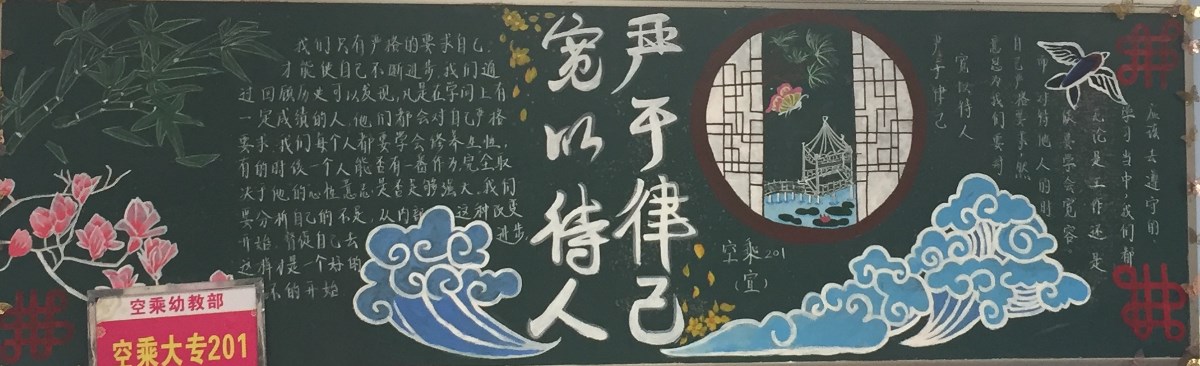 我们只有严格的要求自己，
才能使自己不断进步，我们通
过回顾历史可以发现，凡是在学问上有
一定成绩的人，他们都会对自己严格
要求，我们每个人都要学会修养
有的时候一个人能否有一番作为，完全取
决于他的心性意志是否足够强大，我们
要分析自己的不是，从内 这种改变
开始，督促自己去 进步，
这样 是一个好的
的开始
严于律己
宽以待人
空乘201
（宣）
应该去遵守用
学习当中，我们都
无论是工作还是
要学会宽容
待他人的时
自己严格要求然
意思为我们要对
宽以待人
严于律己
空乘幼教部
空乘大专201